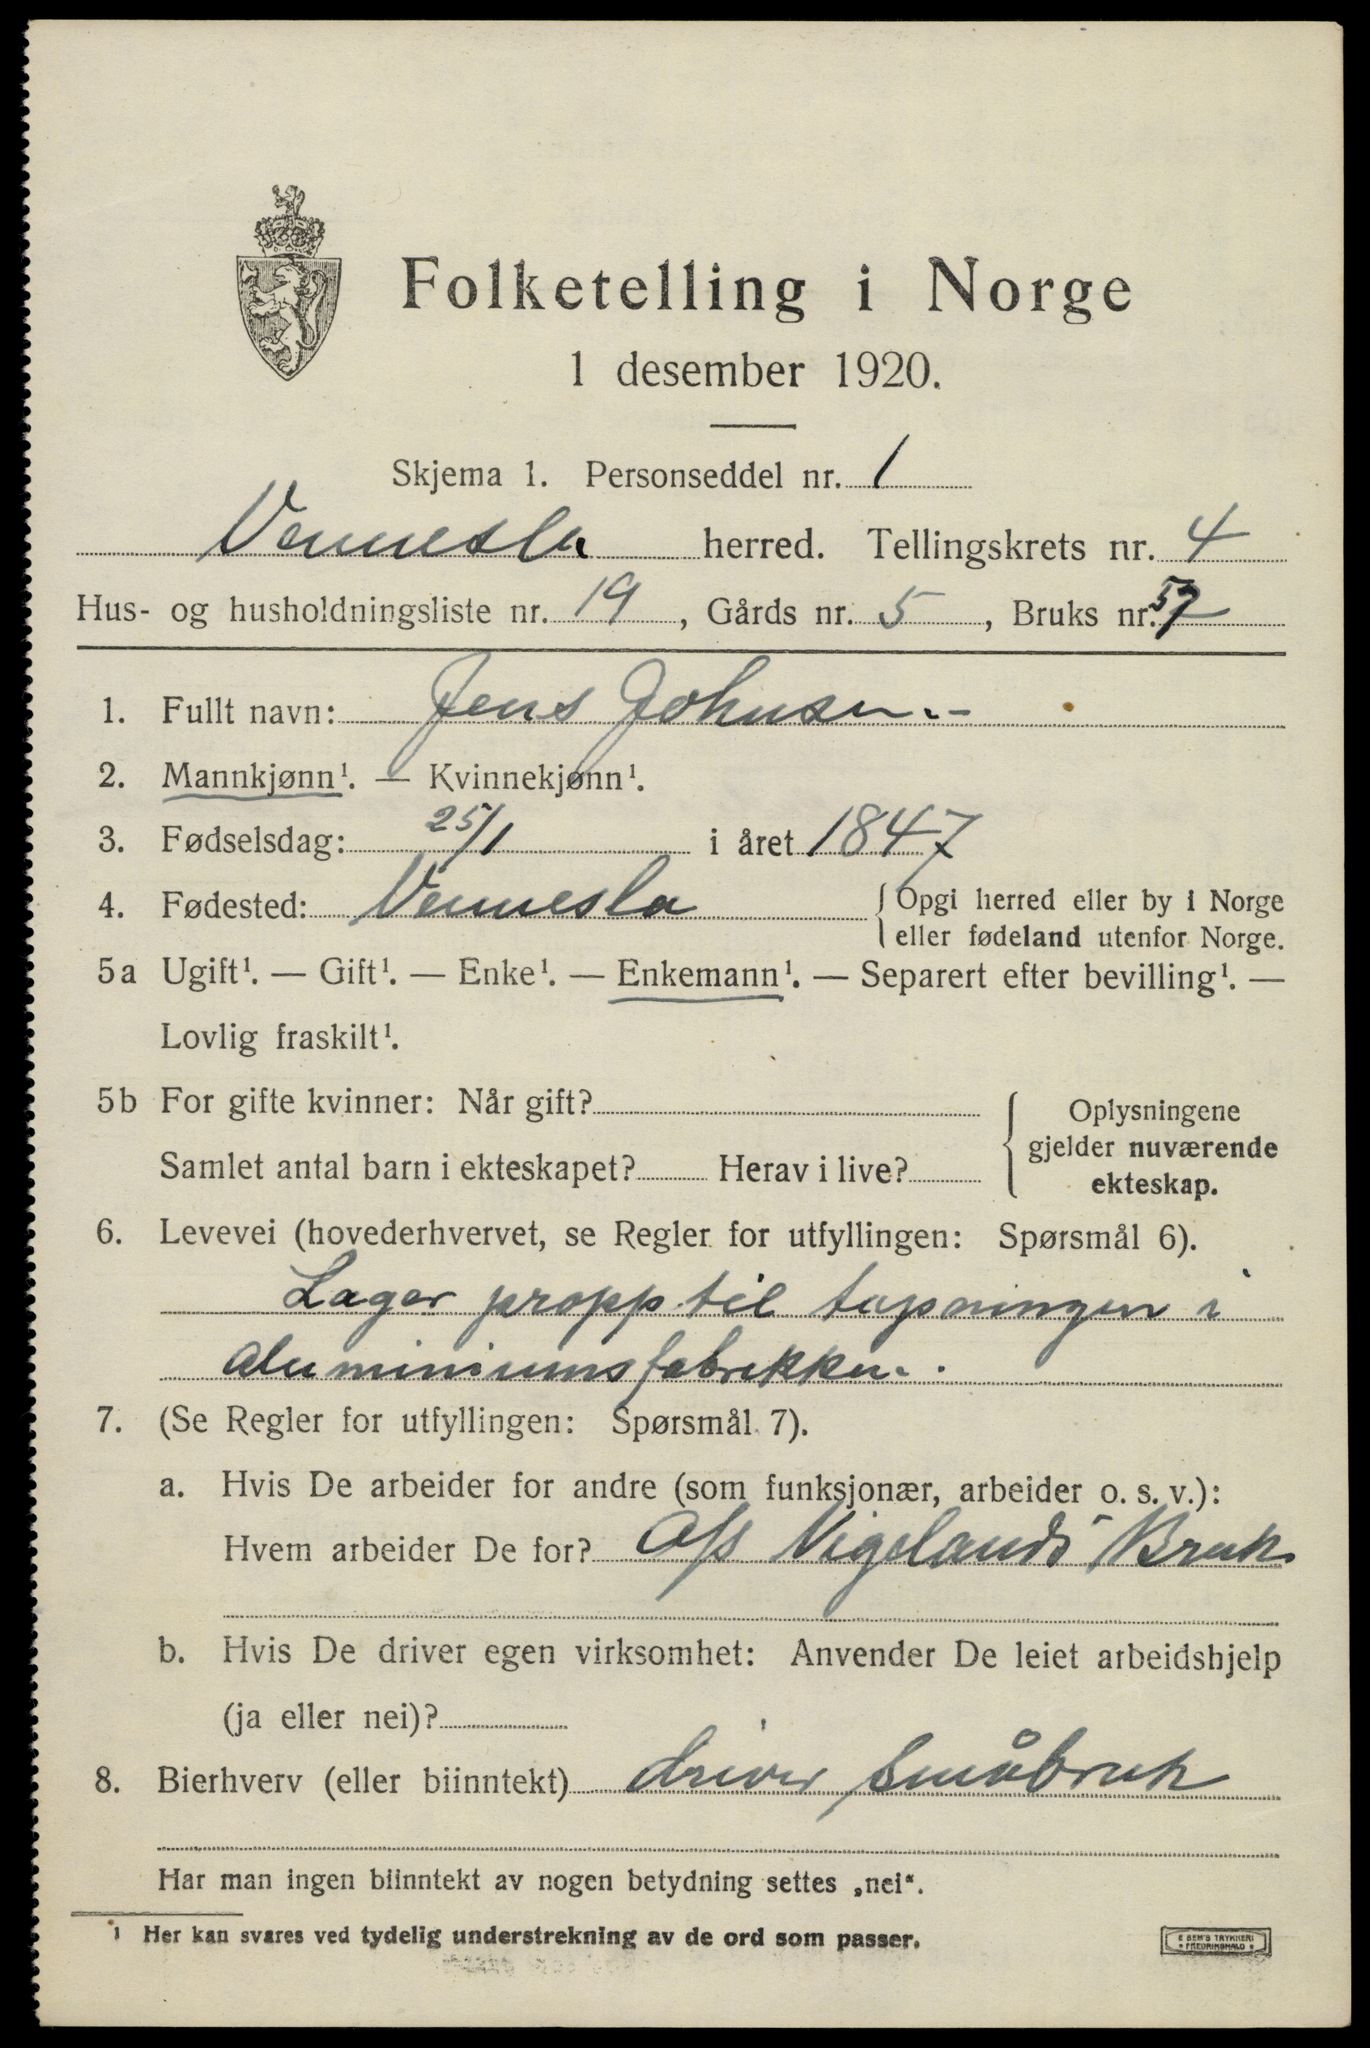 Folketelling i Norge
1 desember 1920.
Skjema 1. Personseddel nr. 1
Vennesla herred. Tellingskrets nr. 4
Hus- og husholdningsliste nr. 19, Gårds nr. 5, Bruks nr. 57
1. Fullt navn: Jens Johnsen.-
2. Mannkjønn¹. — Kvinnekjønn¹.
3. Fødselsdag: 25/1 i året 1847
4. Fødested: Vennesla { Opgi herred eller by i Norge
eller fødeland utenfor Norge.
5a Ugift¹. — Gift¹. — Enke¹. — Enkemann¹. — Separert efter bevilling¹. —
Lovlig fraskilt¹.
5b For gifte kvinner: Når gift?
Samlet antal barn i ekteskapet? Herav i live?
Oplysningene
gjelder nuværende
ekteskap.
6. Levevei (hovederhvervet, se Regler for utfyllingen: Spørsmål 6).
Lager propp til tapningen i
aluminiumsfabrikken.
7. (Se Regler for utfyllingen: Spørsmål 7).
a. Hvis De arbeider for andre (som funksjonær, arbeider o. s. v.):
Hvem arbeider De for? A/S Vigelands Bruk
b. Hvis De driver egen virksomhet: Anvender De leiet arbeidshjelp
(ja eller nei)?
8. Bierhverv (eller biinntekt) driver småbruk
Har man ingen biinntekt av nogen betydning settes „nei".
¹ Her kan svares ved tydelig understrekning av de ord som passer.
E SEM'S TRYKKERI
* FREDRIKSHALD *